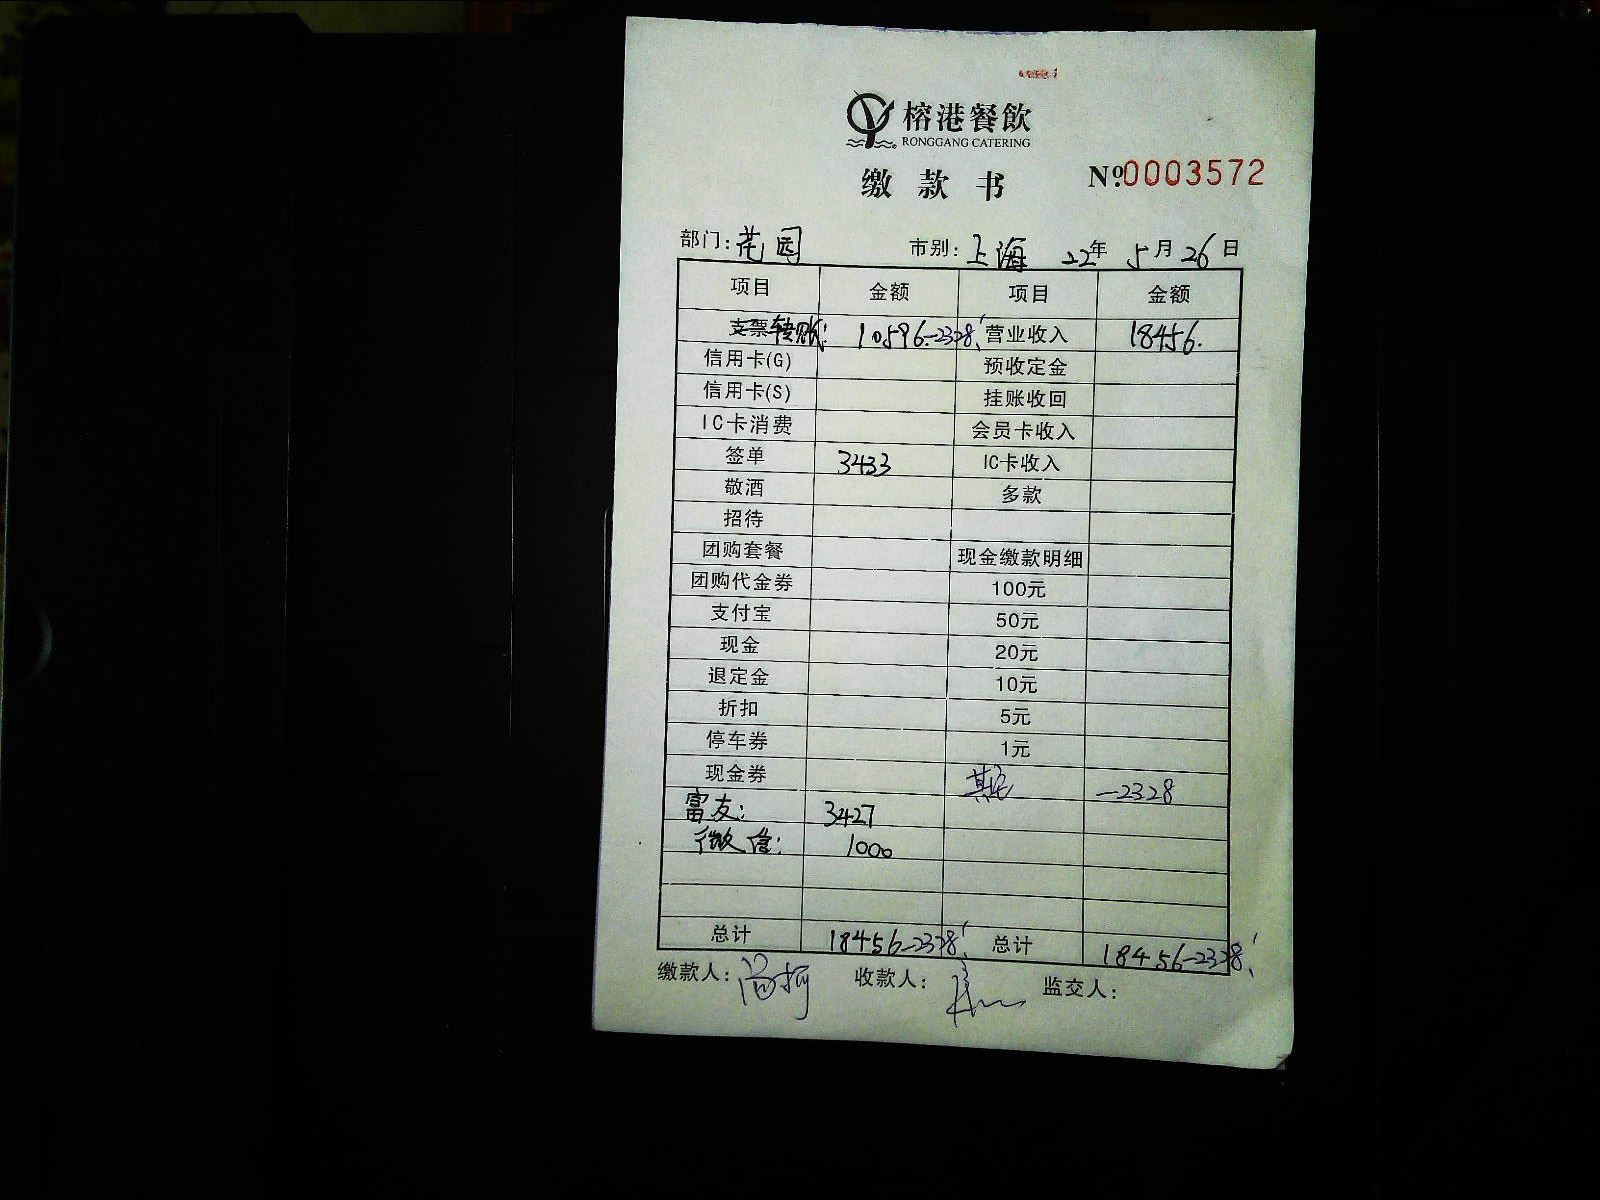 榕港餐飲
RONGGANG CATERING
缴款书 Nº.0003572
部门:花园 市别:上海 22年5月26日
项目 金额 项目 金额
支票转账: 10596.-2328 营业收入 18456.
信用卡(G) 预收定金
信用卡(S) 挂账收回
IC卡消费 会员卡收入
签单 3433 IC卡收入
敬酒 多款
招待
团购套餐 现金缴款明细
团购代金券 100元
支付宝 50元
现金 20元
退定金 10元
折扣 5元
停车券 1元
现金券 其它 -2328
富友: 3427
微信: 1000
总计 18456-2328 总计 18456-2328
缴款人: 收款人: 监交人: